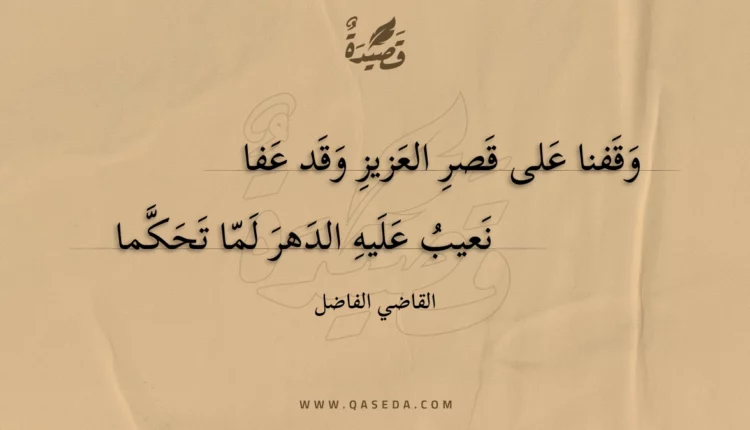 قَصِيدَةٌ
وَقَفنا عَلى قَصرِ العَزيزِ وَقَد عَفا
نَعيبُ عَلَيهِ الدَهرَ لَمّا تَحَكَّما
القاضي الفاضل
WWW.QASEDA.COM